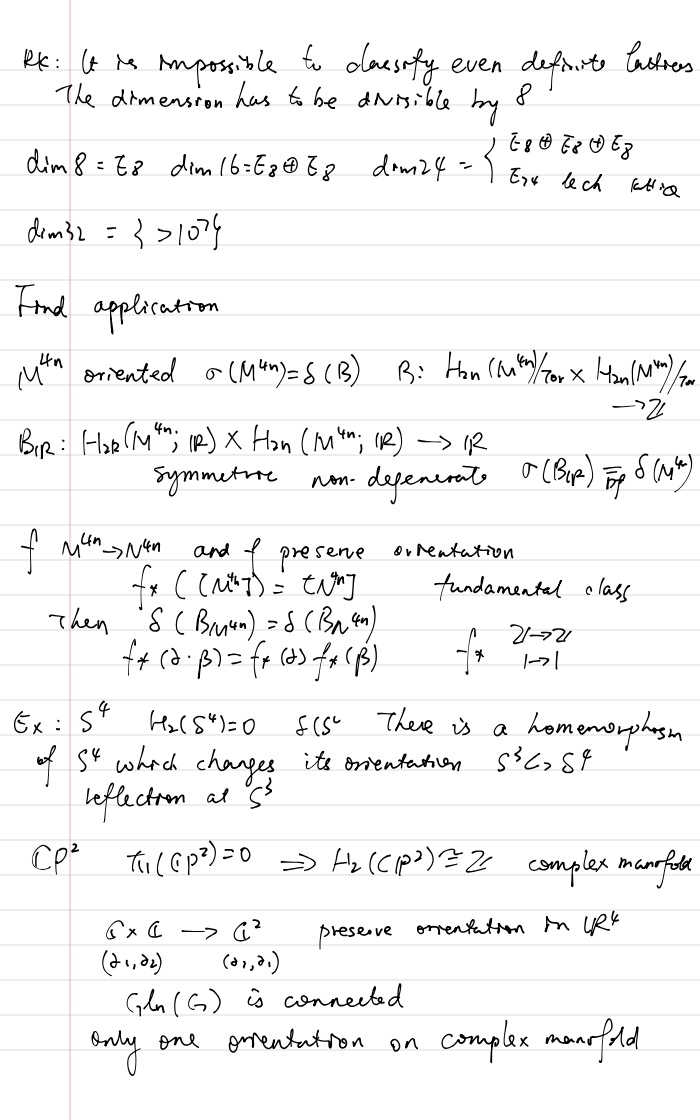 RK: It is impossible to classify even definite lattices
The dimension has to be divisible by 8
dim 8 = E8 dim 16 = E8 ⊕ E8 dim 24 = { E8 ⊕ E8 ⊕ E8
E24 lech lattice
dim 32 = { >10^7 }
Find application
M^4n oriented σ(M^4n) = δ(B) B: H2n(M^4n)/Tor × H2n(M^4n)/Tor
→ ℤ
B_ℝ: H2k(M^4n; ℝ) × H2n(M^4n; ℝ) → ℝ
symmetric non-degenerate σ(B_ℝ) = δ(M^4k)
f M^4n → N^4n and f preserve orientation
f* ([M^4n]) = [N^4n] fundamental class
Then δ(B_M^4n) = δ(B_N^4n)
f*(∂ · β) = f*(∂) f*(β) f* ℤ → ℤ
1 → 1
Ex: S^4 H2(S^4) = 0 δ(S^4 There is a homemorphism
of S^4 which changes its orientation S^3 ↪ S^4
reflection at S^3
ℂP^2 π1(ℂP^2) = 0 ⟹ H2(ℂP^2) ≅ ℤ complex manifold
ℂ × ℂ → ℂ^2 preserve orientation in ℝ^4
(∂1, ∂2) (∂2, ∂1)
Gln(ℂ) is connected
only one orientation on complex manifold